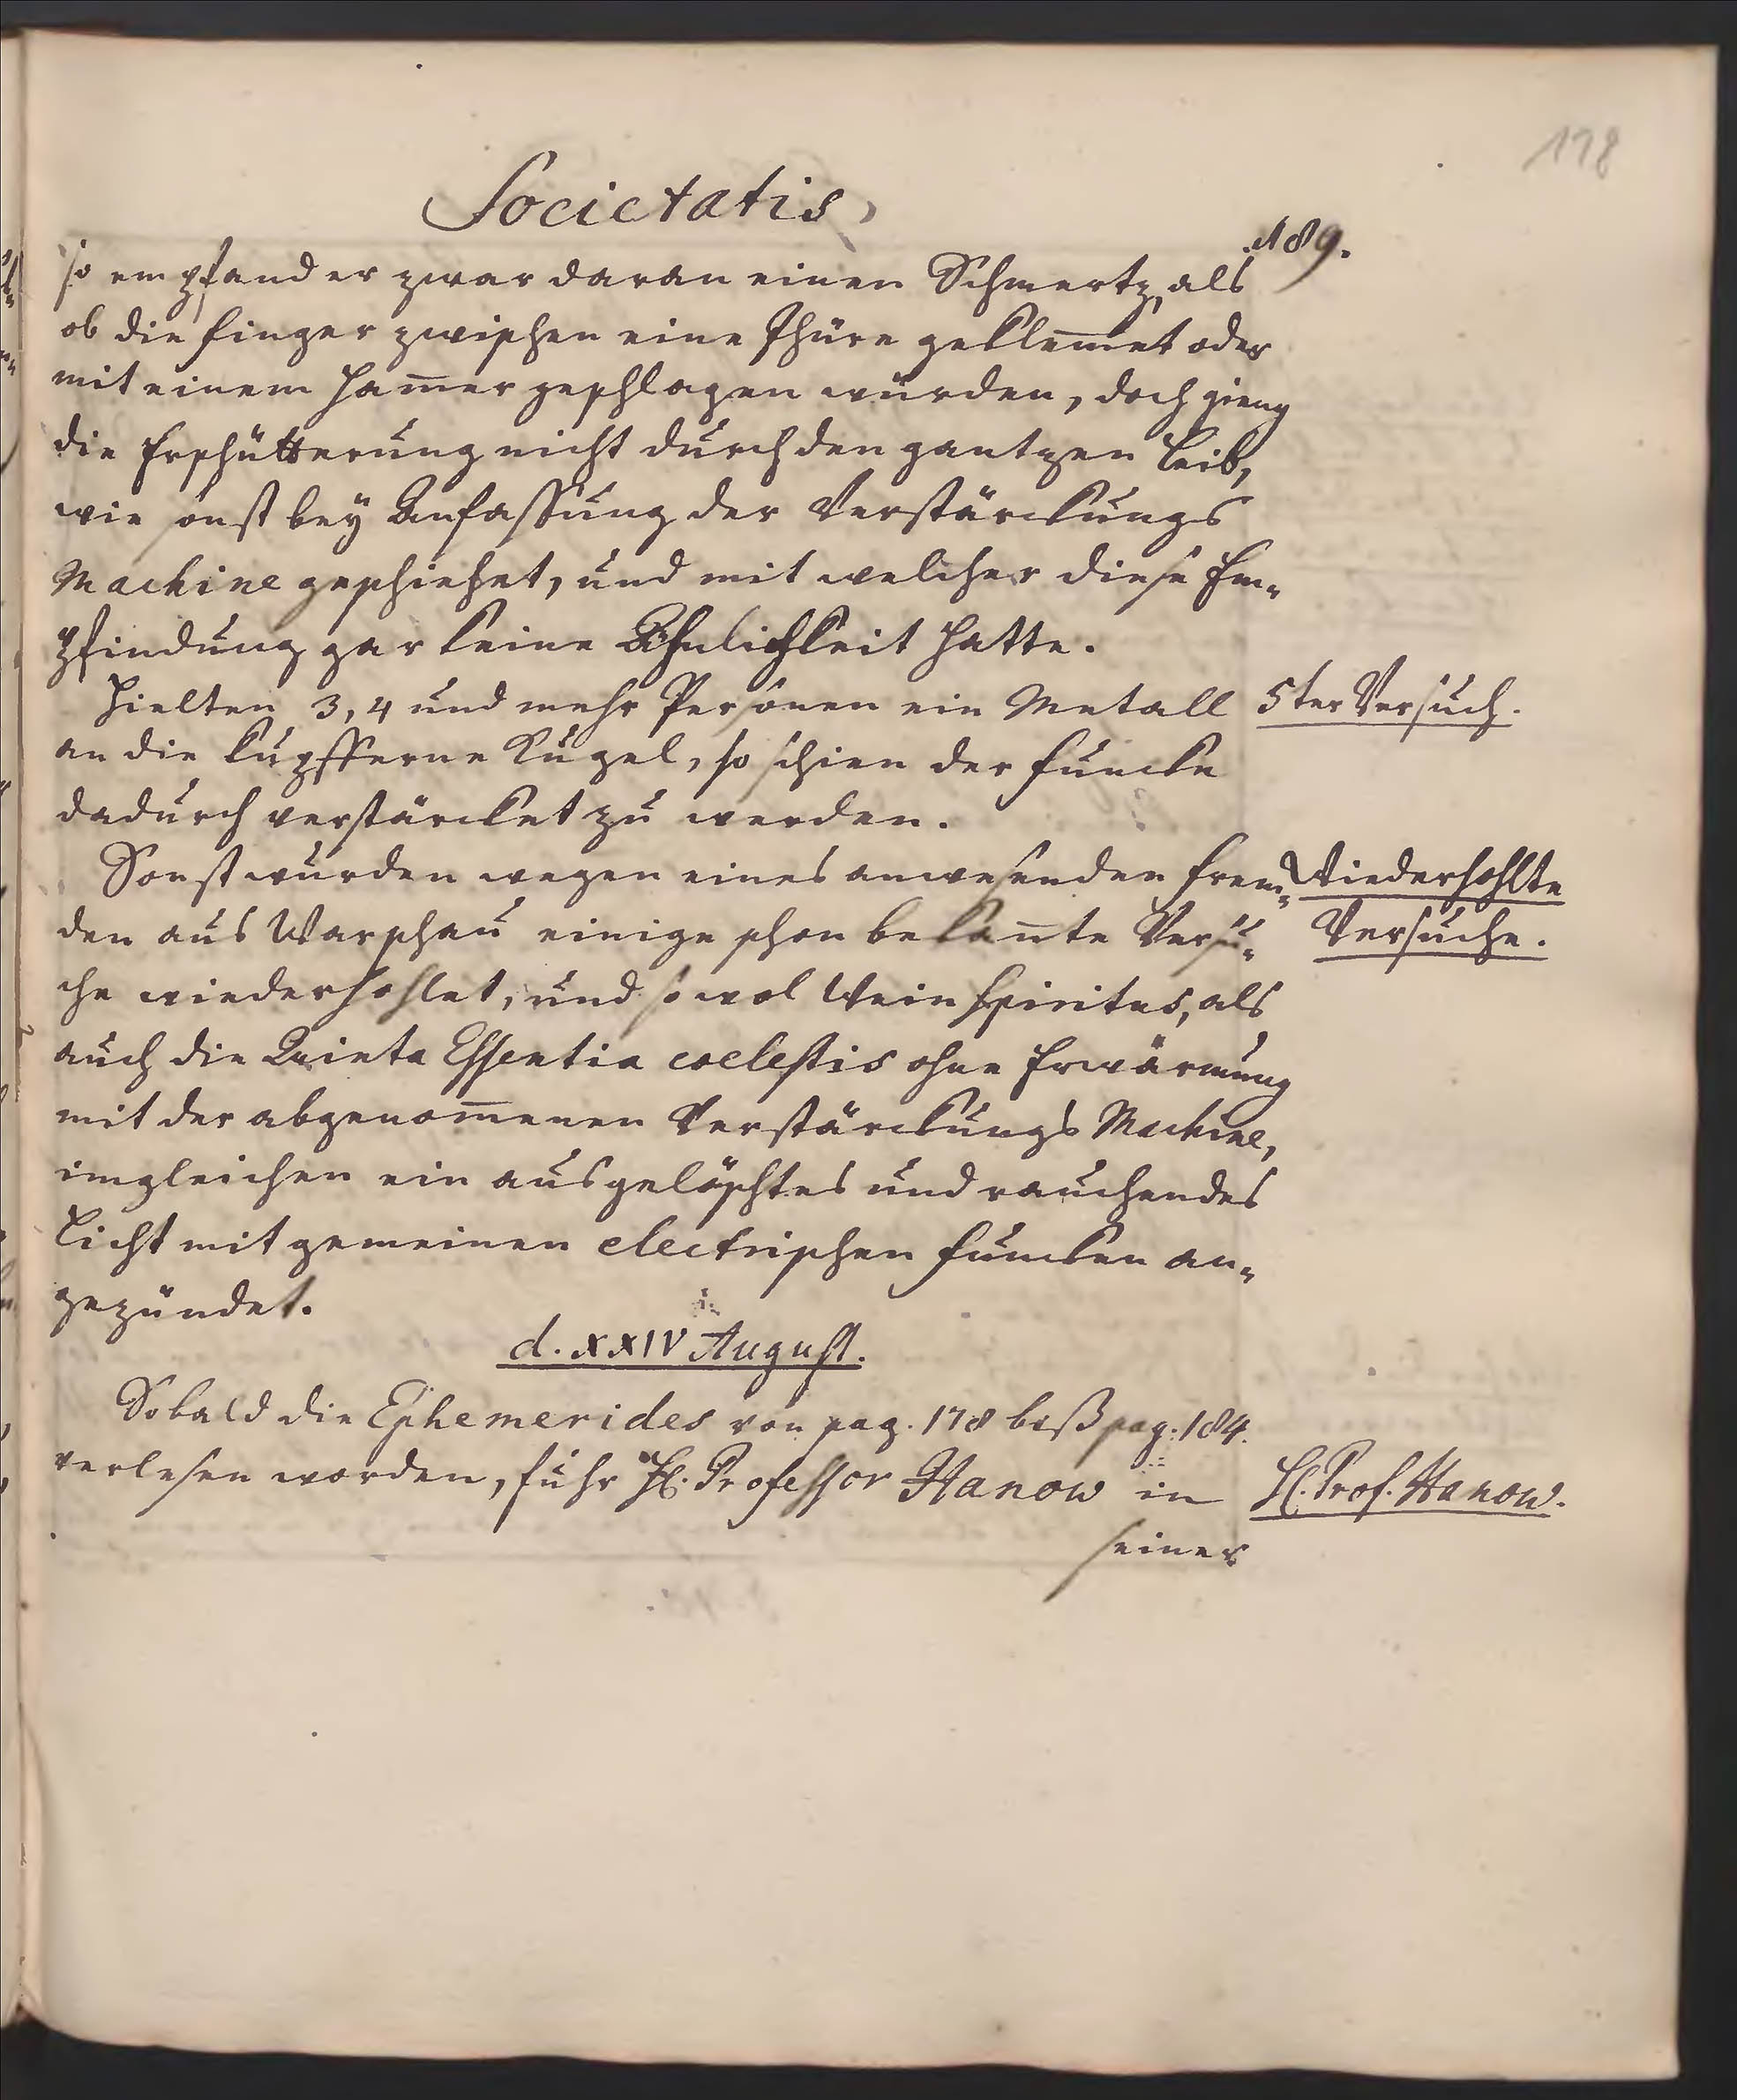 198
Societatis
189.
so empfand er zwar daran einen Schmertz, als
ob die Finger zwischen eine Thüre geklem̅et oder
mit einem Ham̅er geschlagen würden, doch gieng
die Erschütterung nicht durch den gantzen Leib,
wie sonst bey Anfassung der Verstärckungs
Machine geschiehet, und mit welcher diese Em-
pfindung gar keine Ähnlichkeit hatte.
Hielten 3, 4 und mehr Personen ein Metall
5ter Versuch.
an die kupfferne Kugel, so schien der Funcke
dadurch verstärcket zu werden.
Sonst wurden wegen eines anwesenden Frem-
Wiederhohlte
den aus Warschau einige schon bekan̅te Versu-
Versuche.
che wiederhohlet, und sowol Wein Spiritus, als
auch die Quinta Essentia coelestis ohne Erwärmung
mit der abgenom̅enen Verstärckungs Machine,
imgleichen ein ausgelöschtes und rauchendes
Licht mit gemeinen electrischen Funcken an-
gezündet.
d. XXIV August.
Sobald die Ephemerides von pag. 178 biß pag. 184.
verlesen worden, fuhr H. Professor Hanow in
H. Prof. Hanow.
seiner